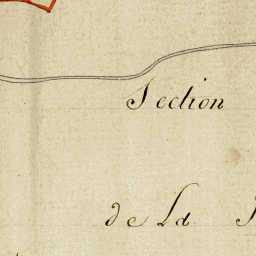 Section
de La